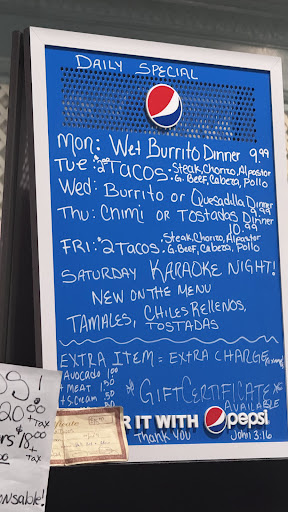 DAILY SPECIAL
Mon: Wet Burrito Dinner 9.99
Tue: $2.00 TACOS: Steak, Chorizo, Alpastor
G. Beef, Cabeza, Pollo
Wed: Burrito or Quesadilla Dinner
9.99
Thu: Chimi or Tostadas Dinner
10.99
FRI: $2 Tacos: Steak, Chorizo, Alpastor
G. Beef, Cabeza, Pollo
SATURDAY KARAOKE NIGHT!
NEW ON THE MENU
TAMALES, CHILES RELLENOS,
TOSTADAS
EXTRA ITEM = EXTRA CHARGE
Avocado 1.00
+ MEAT 1.50
+ S. Cream .50
* GIFT CERTIFICATE *
AVAILABLE
R IT WITH pepsi
Thank You John 3:16
20.00
+ TAX
rs $18.00
+
TAX
onsable!